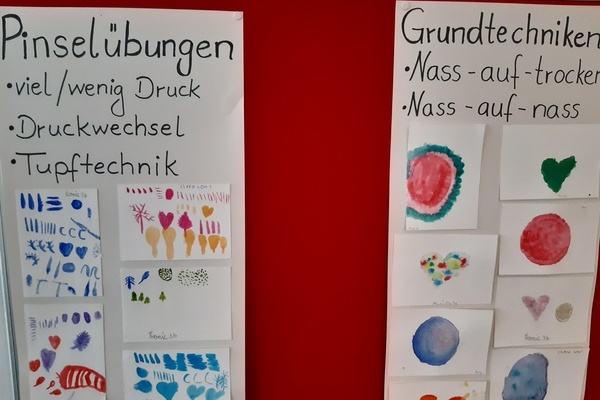 Pinselübungen
•viel/wenig Druck
•Druckwechsel
•Tupftechnik
Grundtechniken
•Nass-auf-trocken
•Nass-auf-nass